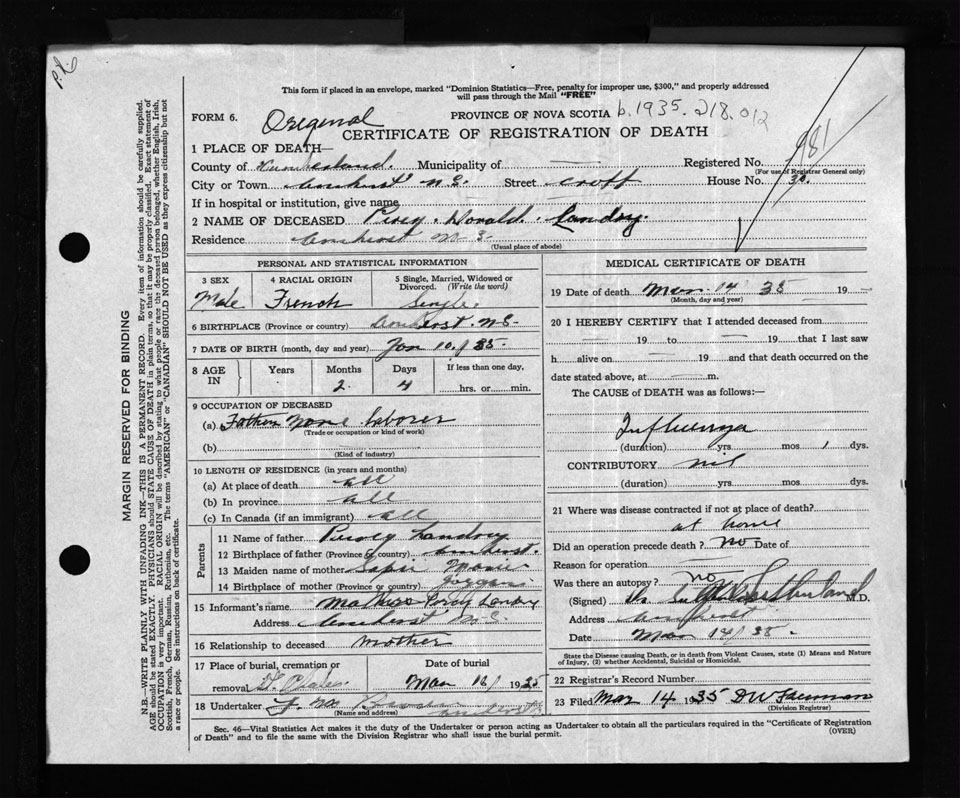 This form if placed in an envelope, marked "Dominion Statistics—Free, penalty for improper use, $300," and properly addressed
will pass through the Mail "FREE"
FORM 6. Original PROVINCE OF NOVA SCOTIA b.1935.218.012
CERTIFICATE OF REGISTRATION OF DEATH
1 PLACE OF DEATH— 981
County of Cumberland. Municipality of — Registered No.
(For use of Registrar General only)
City or Town Amherst N.S. Street Croft House No. 30.
If in hospital or institution, give name
2 NAME OF DECEASED Percy Donald Landry.
Residence Amherst N S.
(Usual place of abode)
PERSONAL AND STATISTICAL INFORMATION
3 SEX 4 RACIAL ORIGIN 5 Single, Married, Widowed or Divorced. (Write the word)
Male French Single.
6 BIRTHPLACE (Province or country) Amherst. N.S.
7 DATE OF BIRTH (month, day and year) Jan 10/35.
8 AGE IN Years Months Days If less than one day,
2 4 hrs. or min.
9 OCCUPATION OF DECEASED
(a) Father None laborer
(Trade or occupation or kind of work)
(b)
(Kind of industry)
10 LENGTH OF RESIDENCE (in years and months)
(a) At place of death all
(b) In province all
(c) In Canada (if an immigrant) all
Parents
11 Name of father Percy Landry
12 Birthplace of father (Province or country) Amherst.
13 Maiden name of mother
14 Birthplace of mother (Province or country) Joggins
15 Informant's name Percy Landry
Address Amherst N.S.
16 Relationship to deceased Mother
17 Place of burial, cremation or removal Date of burial
St. Charles. Mar 16/ 1935
18 Undertaker
(Name and address) Amherst
MEDICAL CERTIFICATE OF DEATH
19 Date of death Mar 14 35 19—
(Month, day and year)
20 I HEREBY CERTIFY that I attended deceased from
— 19 to — 19 that I last saw
h alive on — 19 and that death occurred on the
date stated above, at — m.
The CAUSE of DEATH was as follows:
Influenza
(duration) yrs. mos 1 dys.
CONTRIBUTORY nil
(duration) yrs. mos. dys.
21 Where was disease contracted if not at place of death?
at home
Did an operation precede death? No Date of
Reason for operation
Was there an autopsy? no
(Signed) Sutherland M.D.
Address Amherst
Date Mar 14/35.
State the Disease causing Death, or in Death from Violent Causes, state (1) Means and Nature
of Injury, (2) whether Accidental, Suicidal or Homicidal.
22 Registrar's Record Number
23 Filed Mar 14 35 D W
(Division Registrar)
Sec. 46—Vital Statistics Act makes it the duty of the Undertaker or person acting as Undertaker to obtain all the particulars required in the "Certificate of Registration
of Death" and to file the same with the Division Registrar who shall issue the burial permit. (OVER)
MARGIN RESERVED FOR BINDING
N.B.—WRITE PLAINLY WITH UNFADING INK—THIS IS A PERMANENT RECORD. Every item of information should be carefully supplied.
AGE should be stated EXACTLY. PHYSICIANS should STATE CAUSE OF DEATH in plain terms, so that it may be properly classified. Exact statement of
OCCUPATION is very important. RACIAL ORIGIN will be described by stating to what people or race the deceased person belonged, whether English, Irish,
Scottish, French, German, Russian, Ruthenian, etc. The terms "AMERICAN" or "CANADIAN" SHOULD NOT BE USED as they express citizenship but not
a race or people. See instructions on back of certificate.